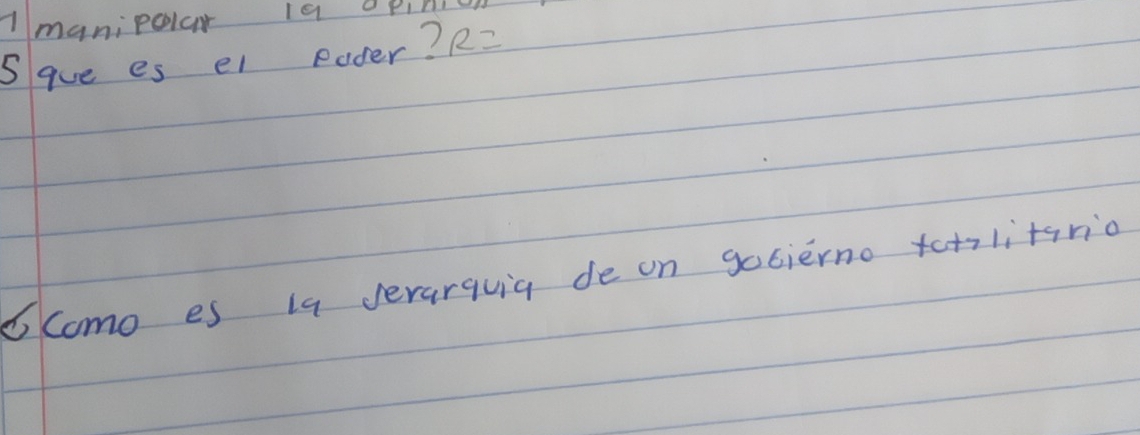 manipolar la opinion
5 que es el Poder ? R=
6 Como es la Jerarquia de un gobiérno totalitario